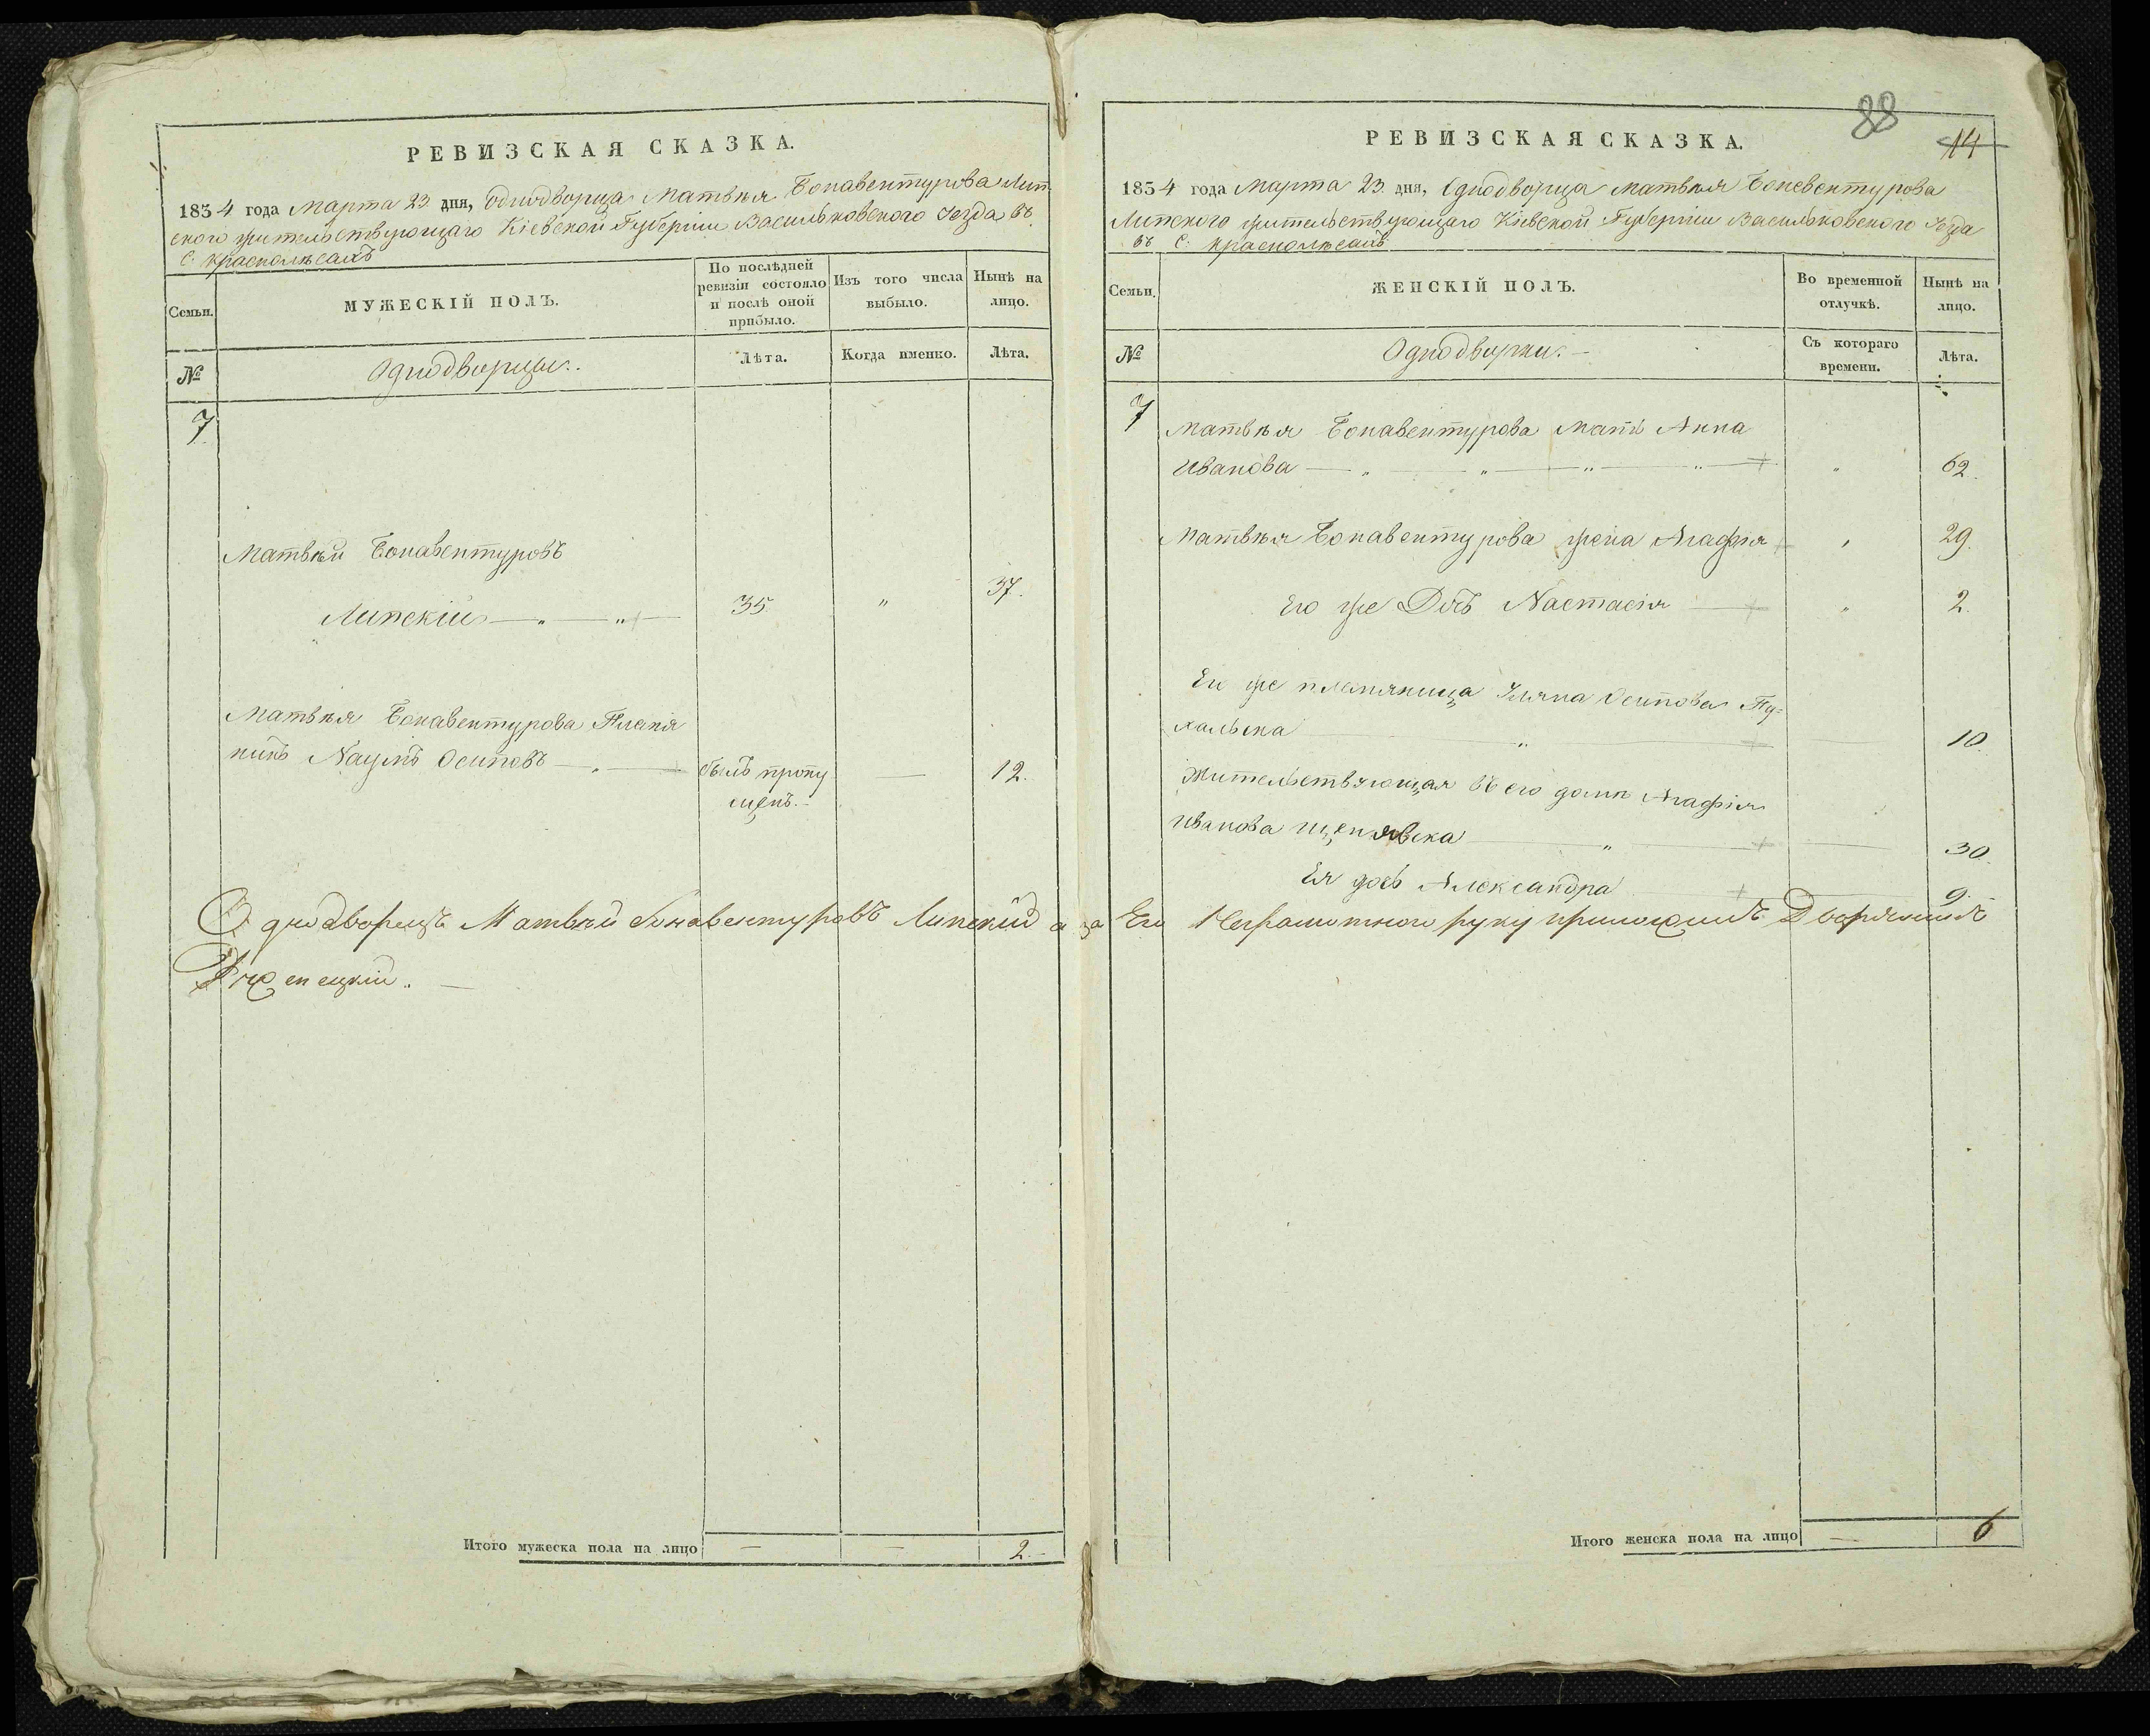 РЕВИЗСКАЯ СКАЗКА.
1834 года Марта 23 дня, Однодворца Матвѣя Бонавентурова Лип-
ского жительствующаго Кіевской Губерніи Васильковского Уезда въ
С: Краснолѣсахъ
Семьи.
МУЖЕСКІЙ ПОЛЪ.
По послѣдней ревизіи состояло и послѣ оной прибыло.
Изъ того числа выбыло.
Нынѣ на лицо.
№
Однодворцы.
Лѣта.
Когда именно.
Лѣта.
7
Матвѣй Бонавентуровъ
Липскій — „ — „ 35. „ 37.
Матвѣя Бонавентурова Племя
никъ Наумъ Осиповъ — „ — былъ пропу — 12.
щенъ. -
Однодворецъ Матвѣй Бонавентуровъ Липскій а за Его Неграмотного руку приложилъ Дворянинъ
Итого мужеска пола на лицо — — 2.
88
14
РЕВИЗСКАЯ СКАЗКА.
1834 года Марта 23. дня, Однодворца Матвѣя Боневентурова
Липского жительствующаго Кіевской Губерніи Васильковского Уезда
въ С: Краснолѣсахъ
Семьи.
ЖЕНСКІЙ ПОЛЪ.
Во временной отлучкѣ.
Нынѣ на лицо.
№
Однодворки. -
Съ котораго времени.
Лѣта.
7
Матвѣя Бонавентурова Мать Анна
Иванова — „ — „ — „ — „ — „ 62.
Матвѣя Бонавентурова жена Агафія „ 29.
Его же Дочь Настасія — „ 2.
Его же племяница Уляна Осипова Пу=
хальска — „ — 10.
Жительствующая въ его доме Агафія
Иванова — „ — 30.
Ея дочь Александра — 9.
Итого женска пола на лицо — 6